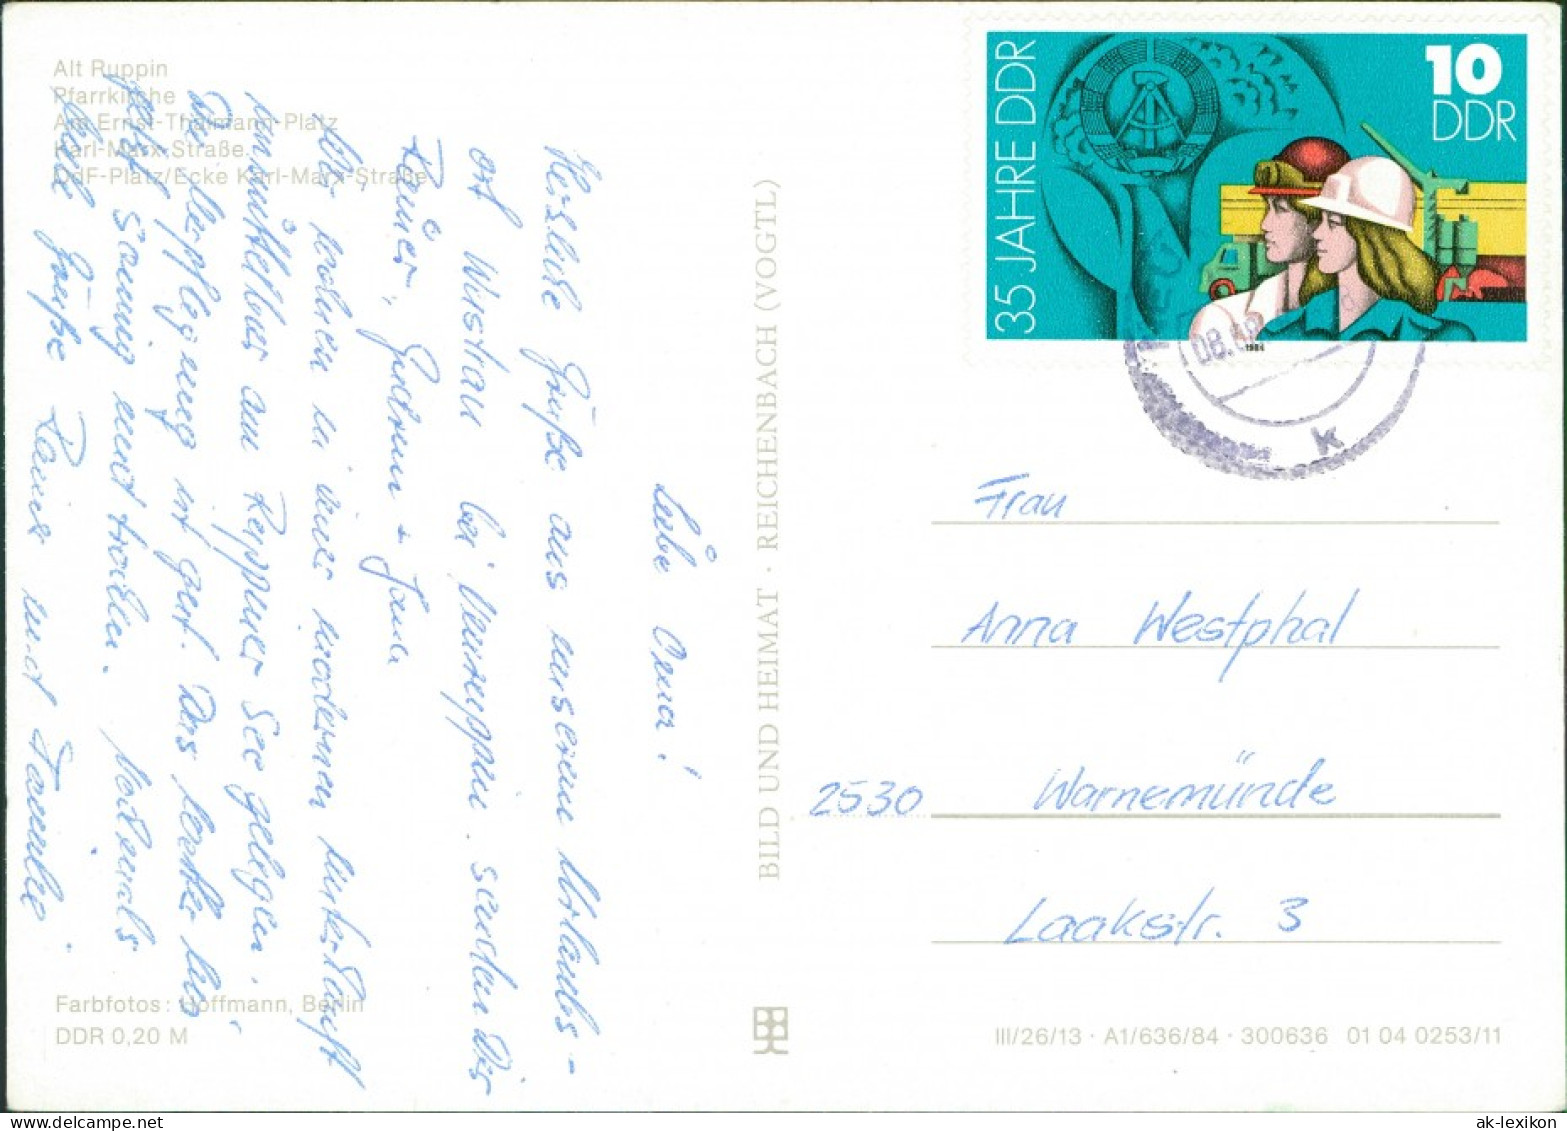 Alt Ruppin
Pfarrkirche
Am Ernst-Thälmann-Platz
Karl-Marx-Straße
OdF-Platz/Ecke Karl-Marx-Straße
Liebe Oma!
Herzliche Grüße aus unserem Urlaubs-
ort Wustrau bei Neuruppin senden Dir
Rainer, Gudrun + Jana
Wir wohnen in einer modernen Unterkunft
unmittelbar am Ruppiner See gelegen.
Die Verpflegung ist gut. Das Wetter bis
jetzt sonnig und trocken. Nochmals
viele Grüße Rainer und Familie.
Farbfotos: Hoffmann, Berlin
DDR 0,20 M
BILD UND HEIMAT · REICHENBACH (VOGTL)
35 JAHRE DDR
10
DDR
1984
08.
k
Frau
Anna Westphal
2530 Warnemünde
Laakstr. 3
III/26/13 · A1/636/84 · 300636 01 04 0253/11
ak-lexikon